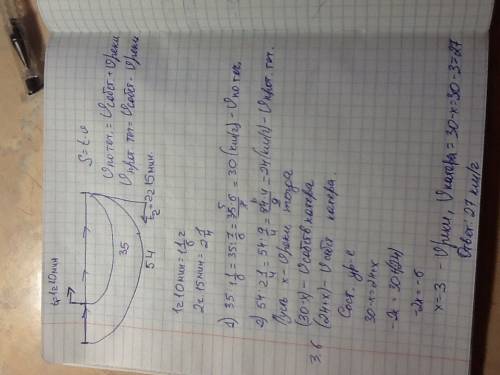 t₁=1ч10мин
35
54
t₂=2ч15мин.
S=t·v
v по теч. = v собст + v реки
v прот. теч = v собст - v реки
1ч10мин = 1 1/6 ч
2ч15мин = 2 1/4
1) 35 : 1 1/6 = 35 : 7/6 = 35·6/7 = 30 (км/ч) - v по теч.
2) 54 : 2 1/4 = 54 : 9/4 = 54·4/9 = 24 (км/ч) - v прот. теч.
Пусть x - v реки, тогда
(30-x) - v собств катера
3.6 (24+x) - v собст катера.
Сост. ур-е
30-x=24+x
-2x = -30+24
-2x = -6
x=3 - v реки, v катера = 30-x=30-3=27
Ответ: 27 км/ч